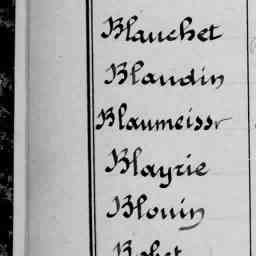 Blauchet
Blaudin
Blaumeissr
Blayrie
Blouin
Bobet